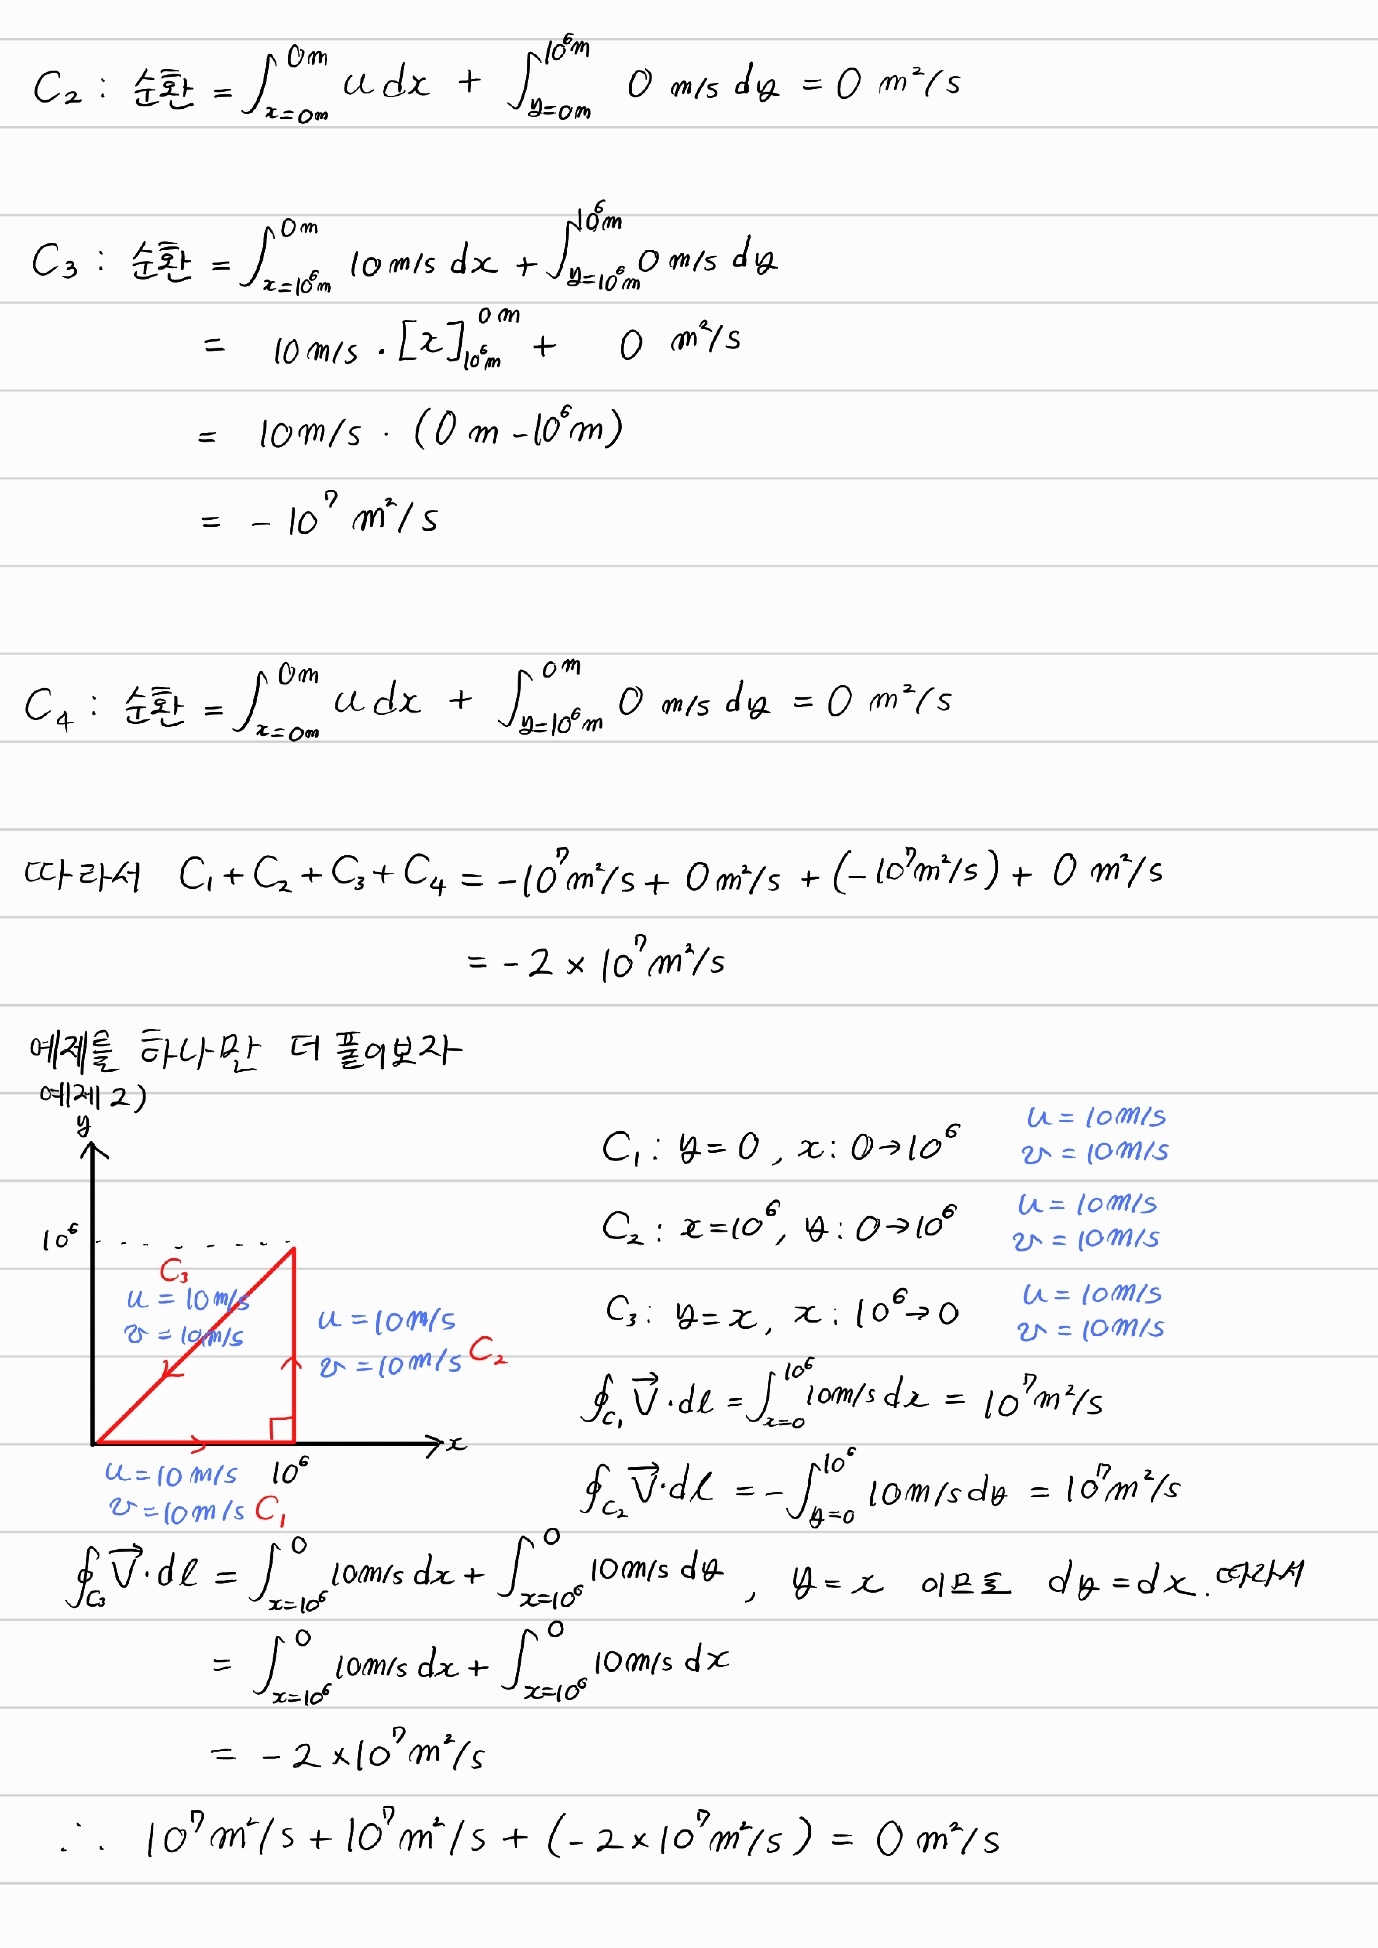 C₂ : 순환 = ∫_{x=0m}^{0m} u dx + ∫_{y=0m}^{10⁶m} 0 m/s dy = 0 m²/s
C₃ : 순환 = ∫_{x=10⁶m}^{0m} 10m/s dx + ∫_{y=10⁶m}^{10⁶m} 0 m/s dy
= 10m/s · [x]_{10⁶m}^{0m} + 0 m²/s
= 10m/s · (0m - 10⁶m)
= - 10⁷ m²/s
C₄ : 순환 = ∫_{x=0m}^{0m} u dx + ∫_{y=10⁶m}^{0m} 0 m/s dy = 0 m²/s
따라서 C₁ + C₂ + C₃ + C₄ = -10⁷m²/s + 0m²/s + (-10⁷m²/s) + 0 m²/s
= - 2 × 10⁷m²/s
예제를 하나만 더 풀어보자
예제2)
y
10⁶
C₃
u = 10m/s
v = 10m/s
u = 10m/s
v = 10m/s C₂
x
u = 10m/s 10⁶
v = 10m/s C₁
C₁ : y = 0, x : 0→10⁶ u = 10m/s
v = 10m/s
C₂ : x = 10⁶, y : 0→10⁶ u = 10m/s
v = 10m/s
C₃ : y = x, x : 10⁶→0 u = 10m/s
v = 10m/s
∮_{C₁} V⃗·dℓ = ∫_{x=0}^{10⁶} 10m/s dx = 10⁷m²/s
∮_{C₂} V⃗·dℓ = -∫_{y=0}^{10⁶} 10m/s dy = 10⁷m²/s
∮_{C₃} V⃗·dℓ = ∫_{x=10⁶}^{0} 10m/s dx + ∫_{x=10⁶}^{0} 10m/s dy , y = x 이므로 dy = dx. 따라서
= ∫_{x=10⁶}^{0} 10m/s dx + ∫_{x=10⁶}^{0} 10m/s dx
= - 2 × 10⁷m²/s
∴ 10⁷m²/s + 10⁷m²/s + (- 2 × 10⁷m²/s) = 0 m²/s